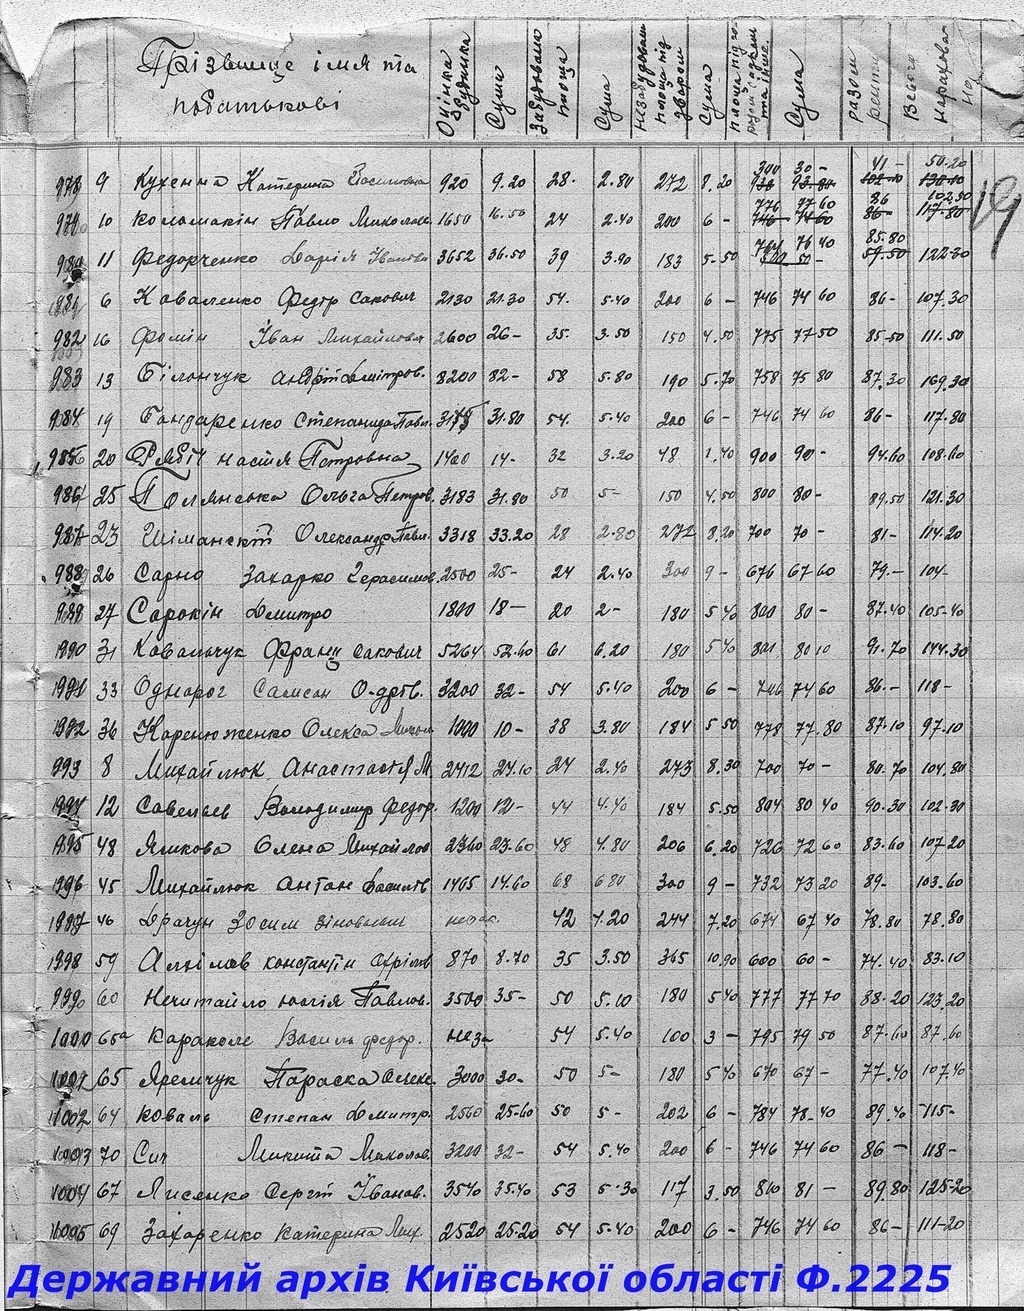 Прізвище імя та побатькові Оцінка будинка Сума Забудована площа Сума незабудована площа під двором Сума площа під го- Сума разом ренти Всього нарахова- но
19
978 9 Кухенна Катерина Василівна 920 9.20 28. 2.80 272 8.20 300 30- 41- 50.20
979 10 Коломакін Павло Миколаєв. 1650 16.50 24 2.40 200 6- 776 77 60 86 102.50
980 11 Федорченко Дарія Іванова 3652 36.50 39 3.90 183 5-50 764 76 40 85.80 122-30
981 6 Коваленко Федір Савович 2130 21.30 54. 5.40 200 6- 746 74 60 86- 107.30
982 16 Фомін Іван Михайлович 2600 26- 35. 3.50 150 4.50 775 77 50 85-50 111.50
983 13 Білончук Андрій Дмітров. 8200 82- 58 5.80 190 5.70 758 75 80 87.30 169.30
984 19 Бондаренко Степанида Павл. 31.80 54. 5.40 200 6- 746 74 60 86- 117.80
985 20 Настя Петровна 1400 14- 32 3.20 48 1.40 900 90- 94.60 108.60
986 25 Полянська Ольга Петров. 3183 31.80 50 5- 150 4.50 800 80- 89.50 121.30
987 23 Шіманскій Олександр Павл. 3318 33.20 28 2.80 272 8.20 700 70- 81- 114.20
988 26 Сарно Захарко Герасимов 2500 25- 24 2.40 300 9- 676 67 60 79.- 104-
989 27 Сорокін Дмитро 1800 18- 20 2- 180 5 40 800 80- 87.40 105.40
990 31 Ковальчук Франц Савович 5264 52.60 61 6.20 180 5 40 801 80 10 91.70 144.30
991 33 Однорог Самсон 3200 32- 54 5.40 200 6- 746 74 60 86.- 118-
992 36 Олекса 1000 10- 38 3.80 184 5 50 778 77.80 87.10 97.10
993 8 Михайлюк Анастасія М. 2412 24.10 24 2.40 273 8.30 700 70- 80.70 104.80
994 12 Савельєв Володимир Федор. 1200 12- 44 4.40 184 5.50 804 80 40 90.30 102.30
995 48 Ямкова Олена Михайлов 2360 23.60 48 4.80 206 6.20 726 72 60 83.60 107.20
996 45 Михайлюк Антон Василів 1465 14.60 68 6 80 300 9- 732 73 20 89- 103.60
997 46 Драчун Зосим Зіновьевич 42 4.20 244 7.20 674 67 40 78.80 78.80
998 59 Константін 870 8.70 35 3.50 365 10.90 600 60- 74.40 83.10
999 60 Нечитайло Юлія Павлов. 3500 35- 50 5.00 180 5 40 777 77 70 88.20 123.20
1000 65а Караколе Василь Федор. 54 5.40 100 3- 795 79 50 87.60 87.60
1001 65 Яремчук Параска Олекс. 3000 30- 50 5- 180 5 40 670 67- 77.40 107.40
1002 64 Коваль Степан Дмитр. 2560 25-60 50 5- 202 6- 784 78.40 89.40 115-
1003 70 Сич Микита Миколов. 3200 32- 54 5.40 200 6- 746 74 60 86- 118-
1004 67 Лисенко Сергій Іванов. 3540 35.40 53 5.30 117 3.50 810 81- 89.80 125.20
1005 69 Захаренко Катерина Мих. 2520 25.20 54 5.40 200 6- 746 74 60 86- 111-20
Державний архів Київської області Ф.2225